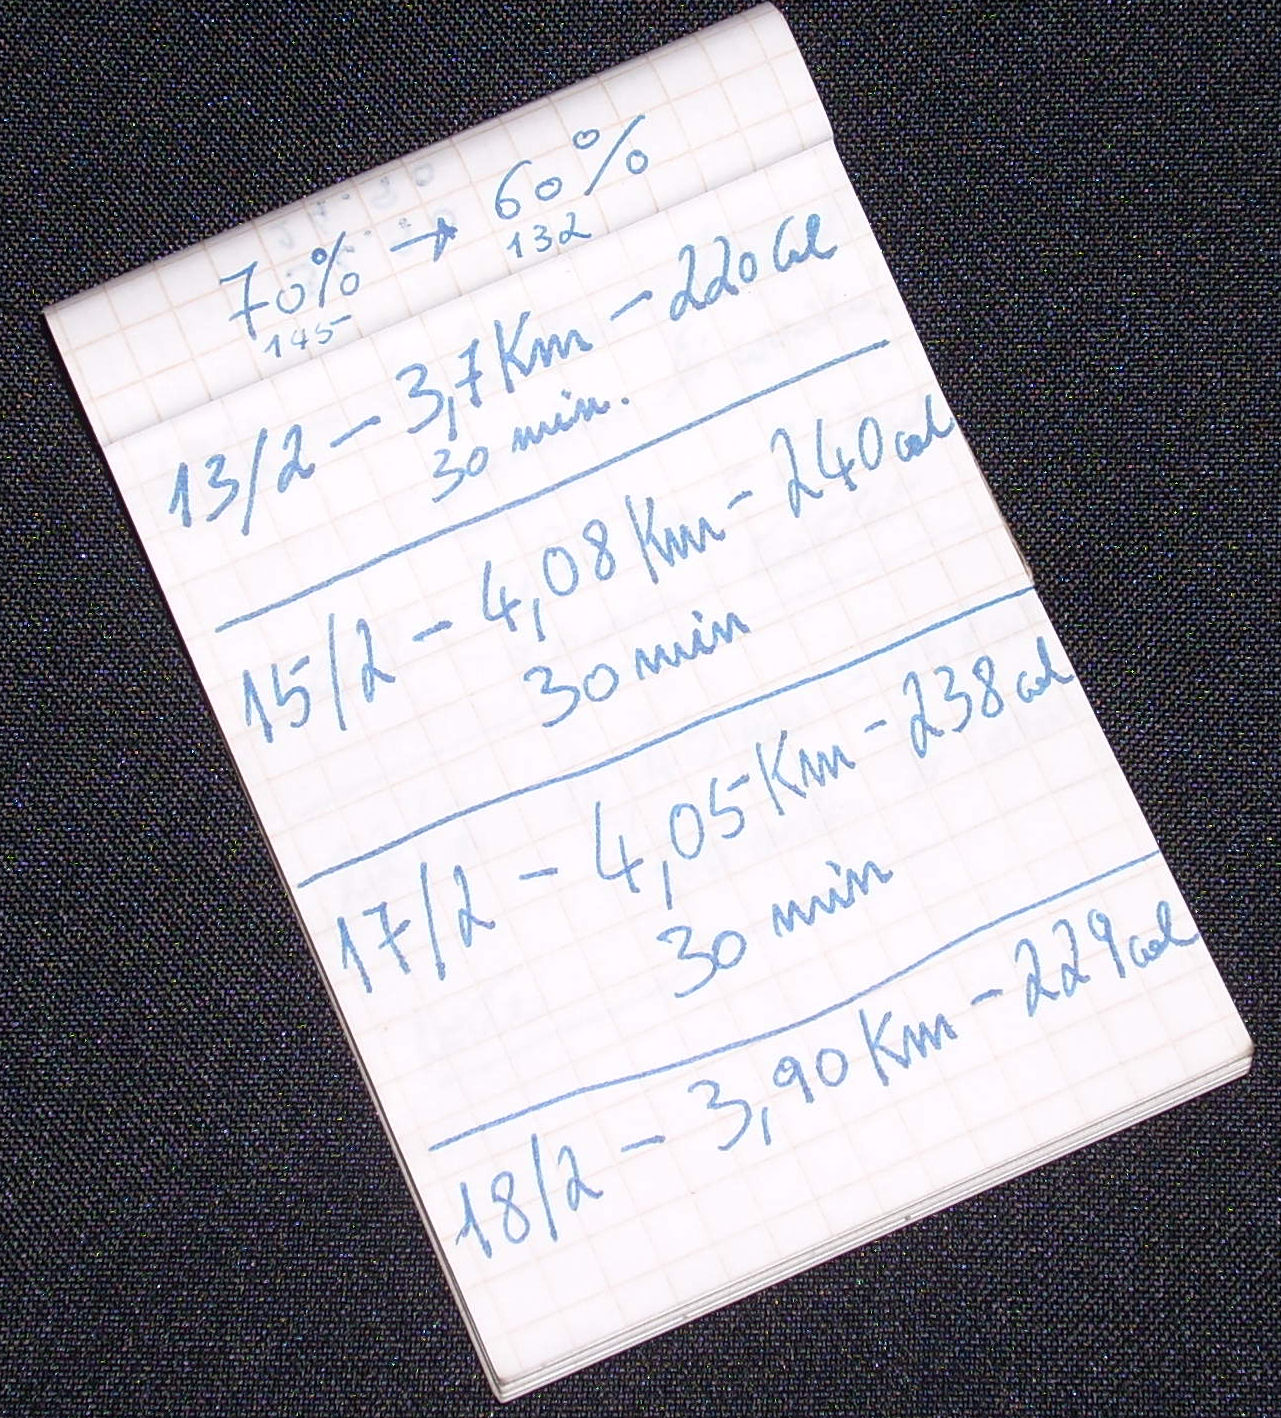 70% → 60%
145 132
13/2 - 3,7 Km - 220 Cal
30 min.
15/2 - 4,08 Km - 240 cal
30 min
17/2 - 4,05 Km - 238 cal
30 min
18/2 - 3,90 Km - 229 cal